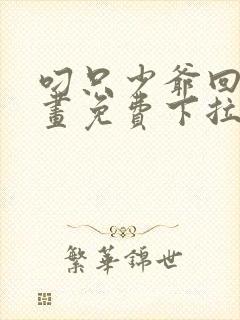 叼只少爷回
畫免費下拉
繁華錦世